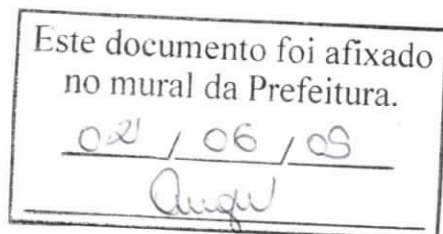 Este documento foi afixado
no mural da Prefeitura.
02 / 06 / 05